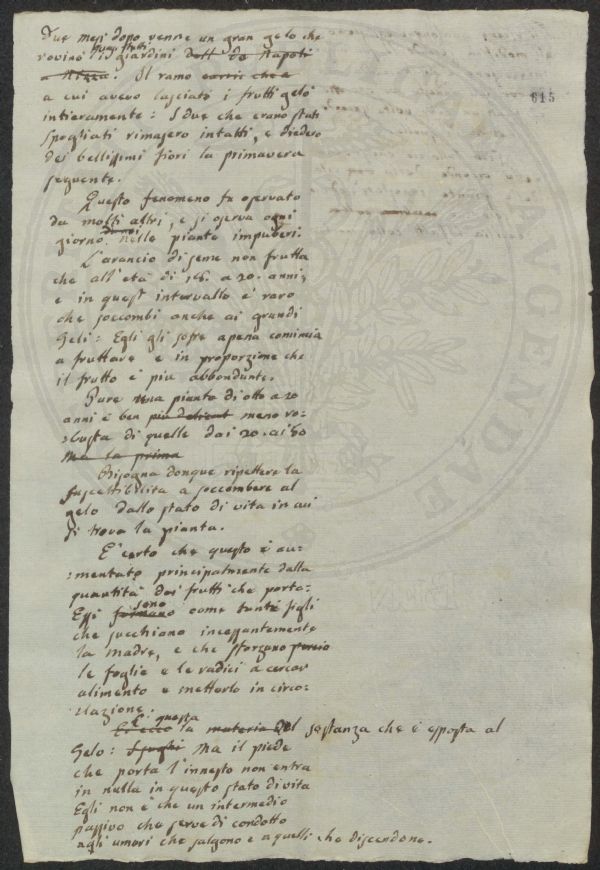 Due mesi dopo venne un gran gelo che
rovinò quasi tutti i giardini dell da Napoli
a Nizza. Il ramo
a cui avevo lasciato i frutti gelò
intieramente: I due che erano stati
spogliati rimasero intatti, e diedero
dei bellissimi fiori la primavera
seguente.
Questo fenomeno fu osservato
da molti altri, e si osserva ogni
giorno nelle piante impuberi.
L'arancio di seme non frutta
che all'età di 18. a 20. anni,
e in quest intervallo è raro
che soccombi anche ai grandi
Geli: Egli gli sofre apena comincia
a fruttare e in proporzione che
il frutto è più abbondante.
Pure una pianta di otto a 20
anni è ben più delicat meno ro-
:busta di quelle dai 20. ai 60
Ma la prima
Bisogna donque ripettere la
suscettibilità a soccombere al
gelo dallo stato di vita in cui
si trova la pianta.
E' certo che questo è au-
:mentato principalmente dalla
quantità dei frutti che porta:
Essi sono come tanti figli
che succhiano incessantemente
la madre, e che sforzano
le foglie e le radici a cercar
alimento e metterlo in circo-
:lazione.
E' questa
Ed ecco la materia sostanza che è esposta al
Gelo: Ma il piede
che porta l'innesto non entra
in nulla in questo stato di vita
Egli non è che un intermedio
passivo che serve di condotto
agli umori che salgono e a quelli che discendono.
615